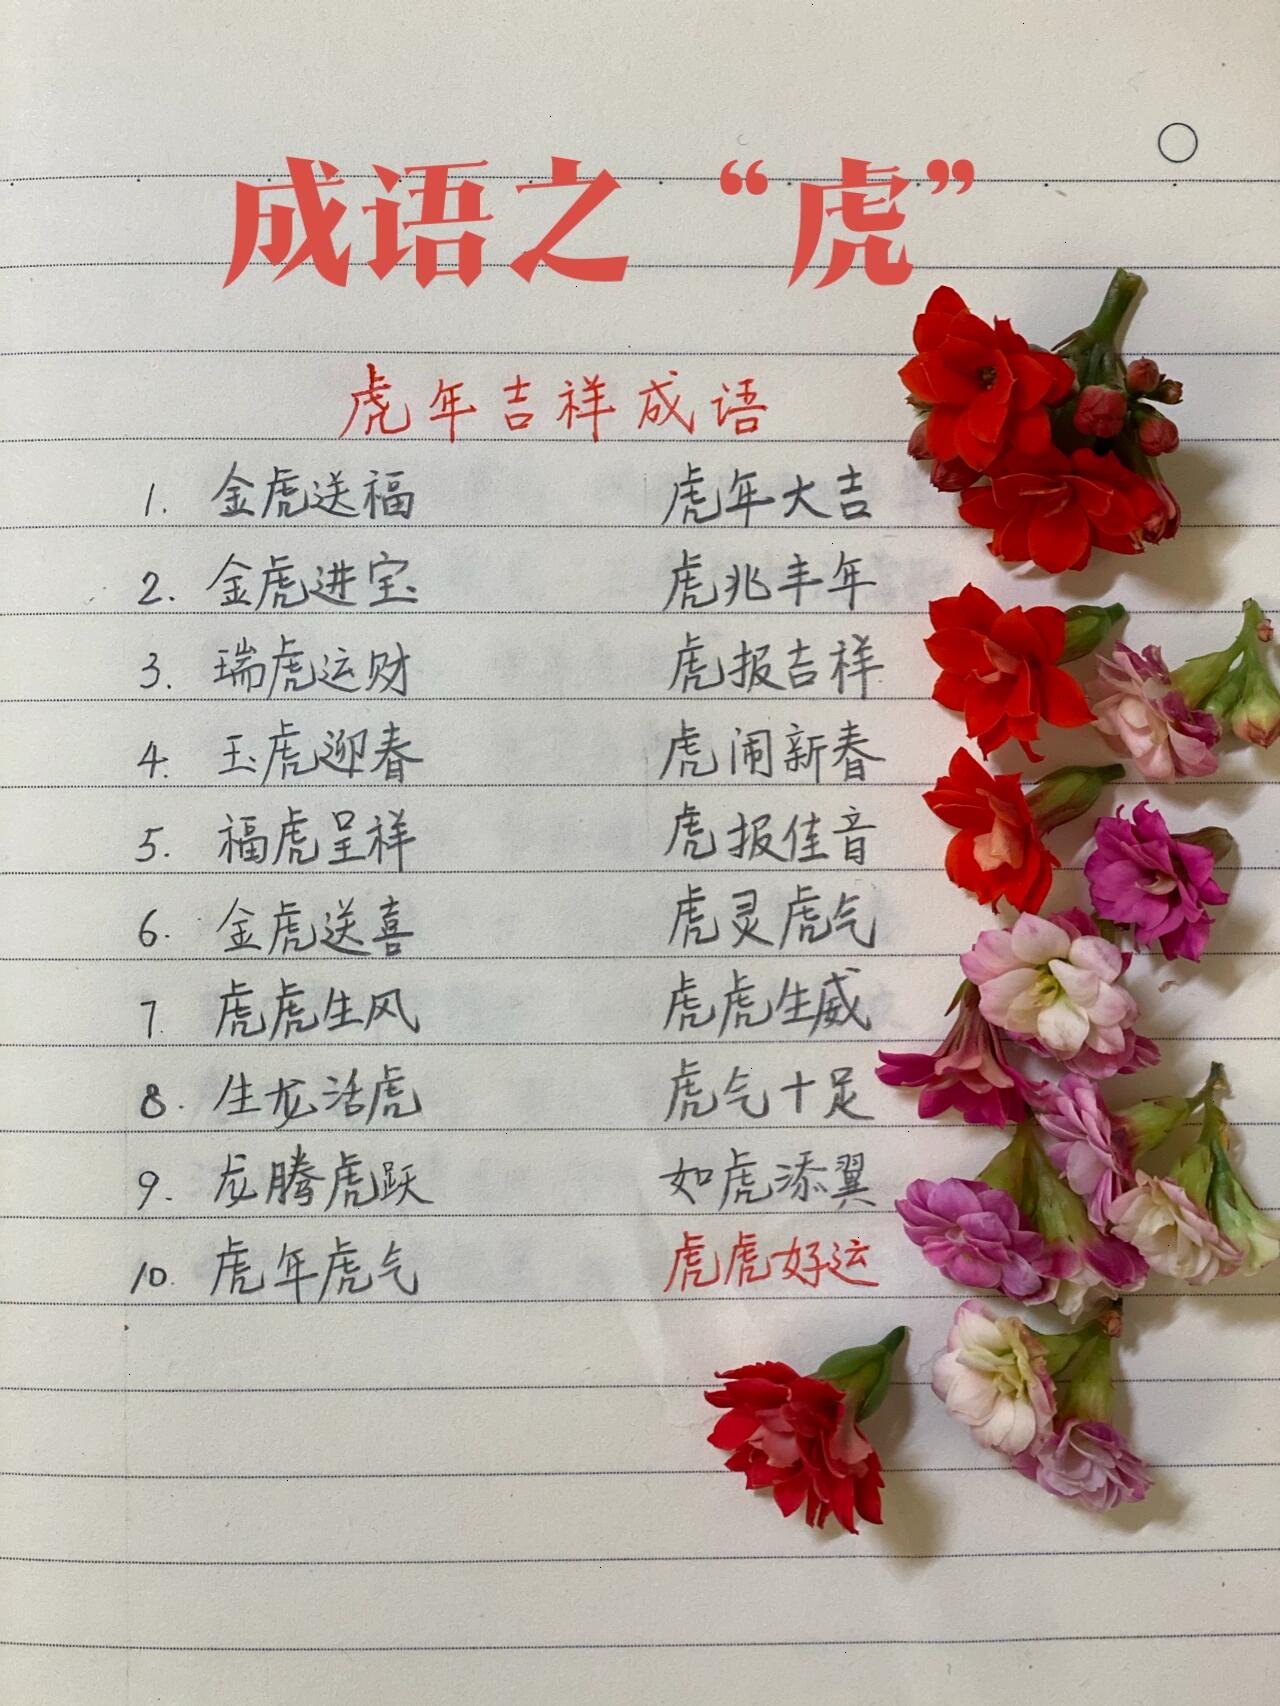 成语之“虎”
虎年吉祥成语
1. 金虎送福 虎年大吉
2. 金虎进宝 虎兆丰年
3. 瑞虎运财 虎报吉祥
4. 玉虎迎春 虎闹新春
5. 福虎呈祥 虎报佳音
6. 金虎送喜 虎灵虎气
7. 虎虎生风 虎虎生威
8. 生龙活虎 虎气十足
9. 龙腾虎跃 如虎添翼
10. 虎年虎气 虎虎好运